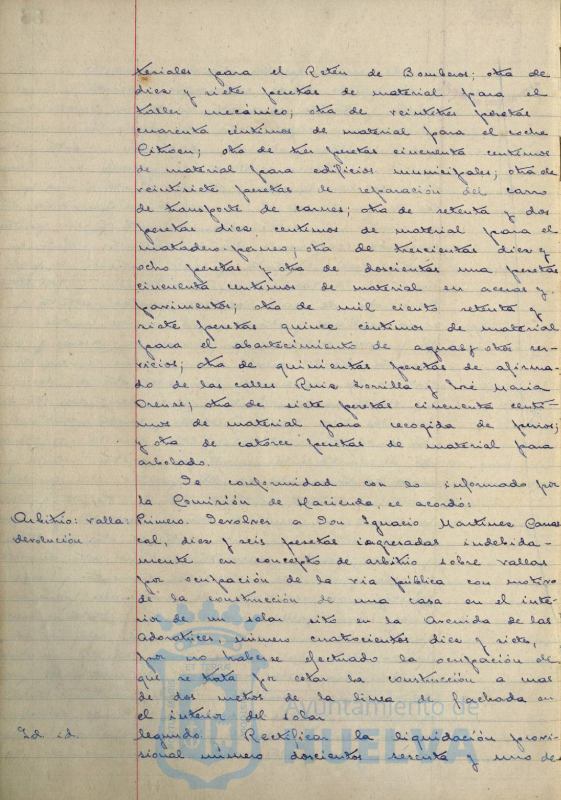 teriales para el Retén de Bomberos; otra de
diez y siete pesetas de material para el
taller mecánico; otra de veintitres pesetas
cuarenta céntimos de material para el coche
Citroen; otra de tres pesetas cincuenta centimos
de material para edificios municipales; otra de
veintisiete pesetas de reparación del carro
de transporte de carnes; otra de setenta y dos
pesetas diez centimos de material para el
matadero-parneo; otra de trescientas diez y
ocho pesetas y otra de doscientas una pesetas
cincuenta centimos de material en aceras y
pavimentos; otra de mil ciento setenta y
siete pesetas quince céntimos de material
para el abastecimiento de aguas y otros ser-
vicios; otra de quinientas pesetas de afirma-
do de las calles Ruiz Zorrilla y José Maria
Orense; otra de siete pesetas cincuenta centi-
mos de material para recogida de perros;
y otra de catorce pesetas de material para
arbolado.
De conformidad con lo informado por
la Comisión de Hacienda, se acordó:
Arbitrio: valla: Primero. Devolver a Don Ignacio Martínez
devolución. cal, diez y seis pesetas ingresadas indebida-
mente en concepto de arbitrio sobre vallas
por ocupación de la via pública con motivo
de la construcción de una casa en el inte-
rior de un solar sito en la Avenida de las
Adoratrices, número cuatrocientos diez y siete,
por no haberse efectuado la ocupación de
que se trata por estar la construcción a mas
de dos metros de la linea de fachada en
el interior del solar
Id. id. Segundo. Rectificar la liquidación provi-
sional número doscientos sesenta y uno de
Ayuntamiento de
HUELVA